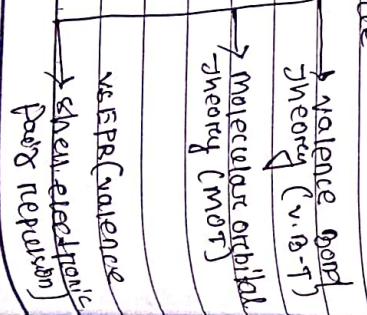 valence Bond
Theory (V.B-T)
molecular orbital
Theory (MOT)
VSEPR (valence
shell electronic
pair repulsion)